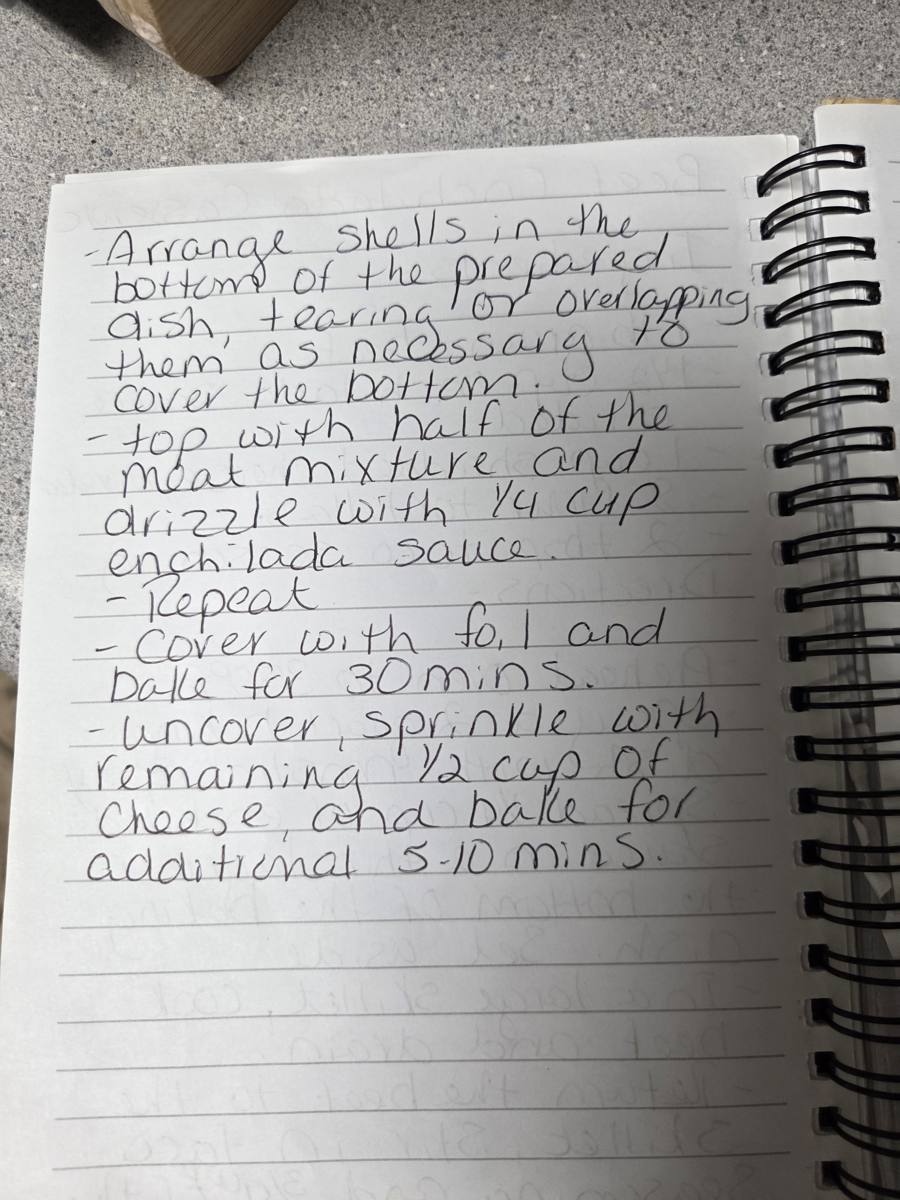 - Arrange shells in the
bottom of the prepared
dish, tearing or overlapping
them as necessary to
cover the bottom.
- top with half of the
meat mixture and
drizzle with 1/4 cup
enchilada sauce.
- Repeat
- Cover with foil and
bake for 30 mins.
- uncover, sprinkle with
remaining 1/2 cup of
cheese, and bake for
additional 5-10 mins.